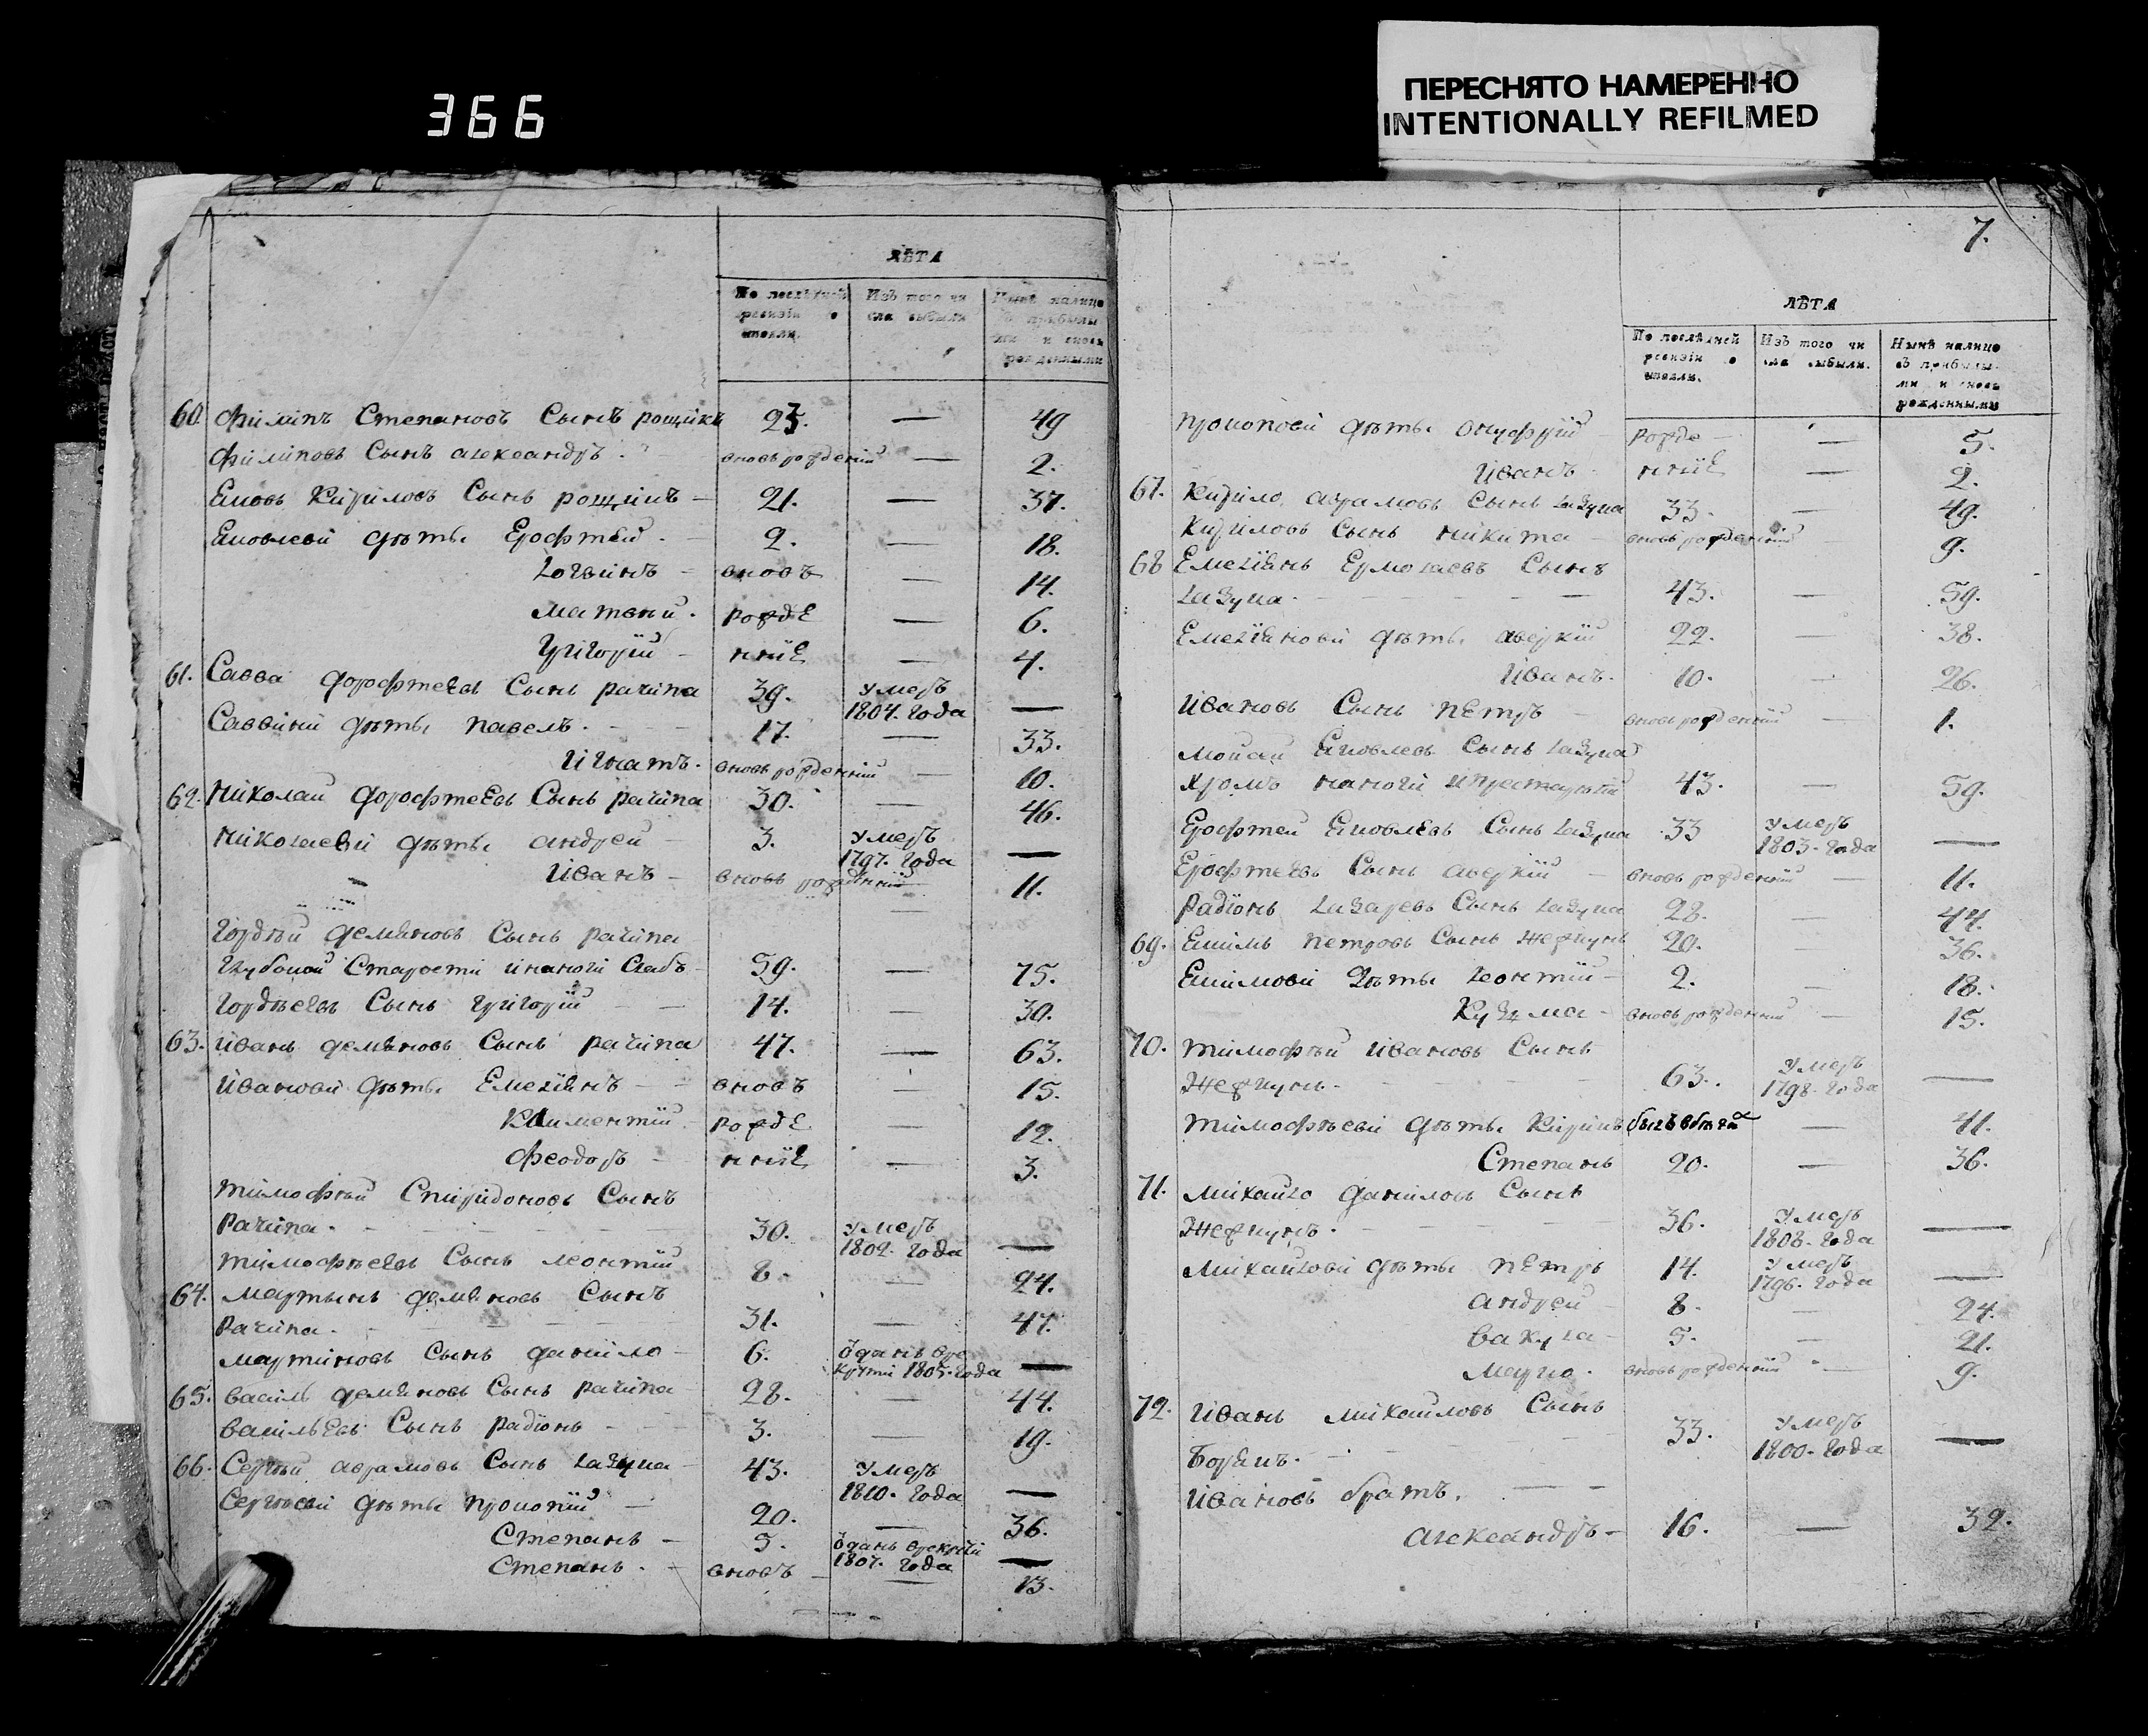 366
ПЕРЕСНЯТО НАМЕРЕННО
INTENTIONALLY REFILMED
ЛѢТА
По послѣдней ревизіи о
Изъ того числа выбыли
Нынѣ налицо съ прибылыми и вновь рожденными
60. Филипъ Степановъ Сынъ — 49
Филиповъ Сынъ александръ вновь рожденнiй — 2.
Яковъ Кирiловъ Сынъ рощинъ — 21. — 37.
Яковлевы дѣти Ерофѣй — 2. — 18.
Логвинъ — вновъ — 14.
матвѣй. рожде — 6.
Григорiй — ннiе — 4.
61. Савва дорофѣевъ Сынъ рачiпа 39. умеръ 1804. года —
Саввины дѣти павелъ. 17. — 33.
Игнатъ. вновь рожденнiй — 10.
62. Николай дорофѣевъ Сынъ рачiпа 30. — 46.
Николаевы дѣти андрей — 3. умеръ 1797. года —
Иванъ — вновь рожденнiй — 11.
Гордѣй демяновъ Сынъ рачiпа
глубокой Старости и наноги Слабъ — 59. — 75.
Гордѣевъ Сынъ григорiй — 14. — 30.
63. Иванъ демяновъ Сынъ рачiпа 47. — 63.
Ивановы дѣти Емелiянъ — вновъ — 15.
Климентiй рожде — 12.
Феодоръ — ннiе — 3.
Тимофѣй Спиридоновъ Сынъ
рачiпа. 30. умеръ 1802. года —
Тимофѣевъ Сынъ леонтiй 8. — 24.
64. Мартынъ демяновъ Сынъ
рачiпа. 31. — 47.
мартиновъ Сынъ данiло — 6. ѿданъ врекруты 1805. года —
65. василь демяновъ Сынъ рачiпа 28. — 44.
васильевъ Сынъ радiонъ — 3. — 19.
66. Сергѣй аврамовъ Сынъ лазука — 43. умеръ 1810. года —
Сергѣевы дѣти прокопiй — 20. — 36.
Степанъ — 5. ѿданъ врекруты 1807. года —
Степанъ. вновъ — 13.
7.
ЛѢТА
По послѣдней ревизіи о
Изъ того числа выбыли.
Нынѣ налицо съ прибылыми и вновь рожденными
прокоповы дѣти онуфрiй — рожде — 5.
Иванъ ннiе — 2.
67. Кирило аврамовъ Сынъ лазука 33. — 49.
Кириловъ Сынъ никита — вновь рожденнiй — 9.
68 Емелiянъ Ермолаевъ Сынъ
лазука. 43. — 59.
Емелiяновы дѣти аверкiй 22. — 38.
Иванъ. 10. — 26.
Ивановъ Сынъ петръ — вновь рожденнiй — 1.
мойсей Яковлевъ Сынъ лазука
хромъ наноги и престарелый 43. — 59.
Ерофѣй Яковлевъ Сынъ лазука 33 умеръ 1803. года —
Ерофѣевъ Сынъ аверкiй — вновь рожденнiй — 11.
Радiонъ лазаревъ Сынъ лазука 28. — 44.
69. Екимъ петровъ Сынъ 20. — 36.
Екимовы дѣти леонтiй — 2. — 18.
Кузма — вновь рожденнiй — 15.
70. тимофѣй Ивановъ Сынъ
63. умеръ 1798. года —
тимофѣевы дѣти Кирикъ былъ вбѣга — 41.
Степанъ 20. — 36.
71. михайло данiловъ Сынъ
36. умеръ 1808. года —
михайловы дѣти петръ 14. умеръ 1796. года —
андрей — 8. — 24.
вакула — 5. — 21.
марко. вновь рожденнiй — 9.
72. Иванъ михайловъ Сынъ
33. умеръ 1800. года —
Ивановъ братъ.
александръ — 16. — 32.